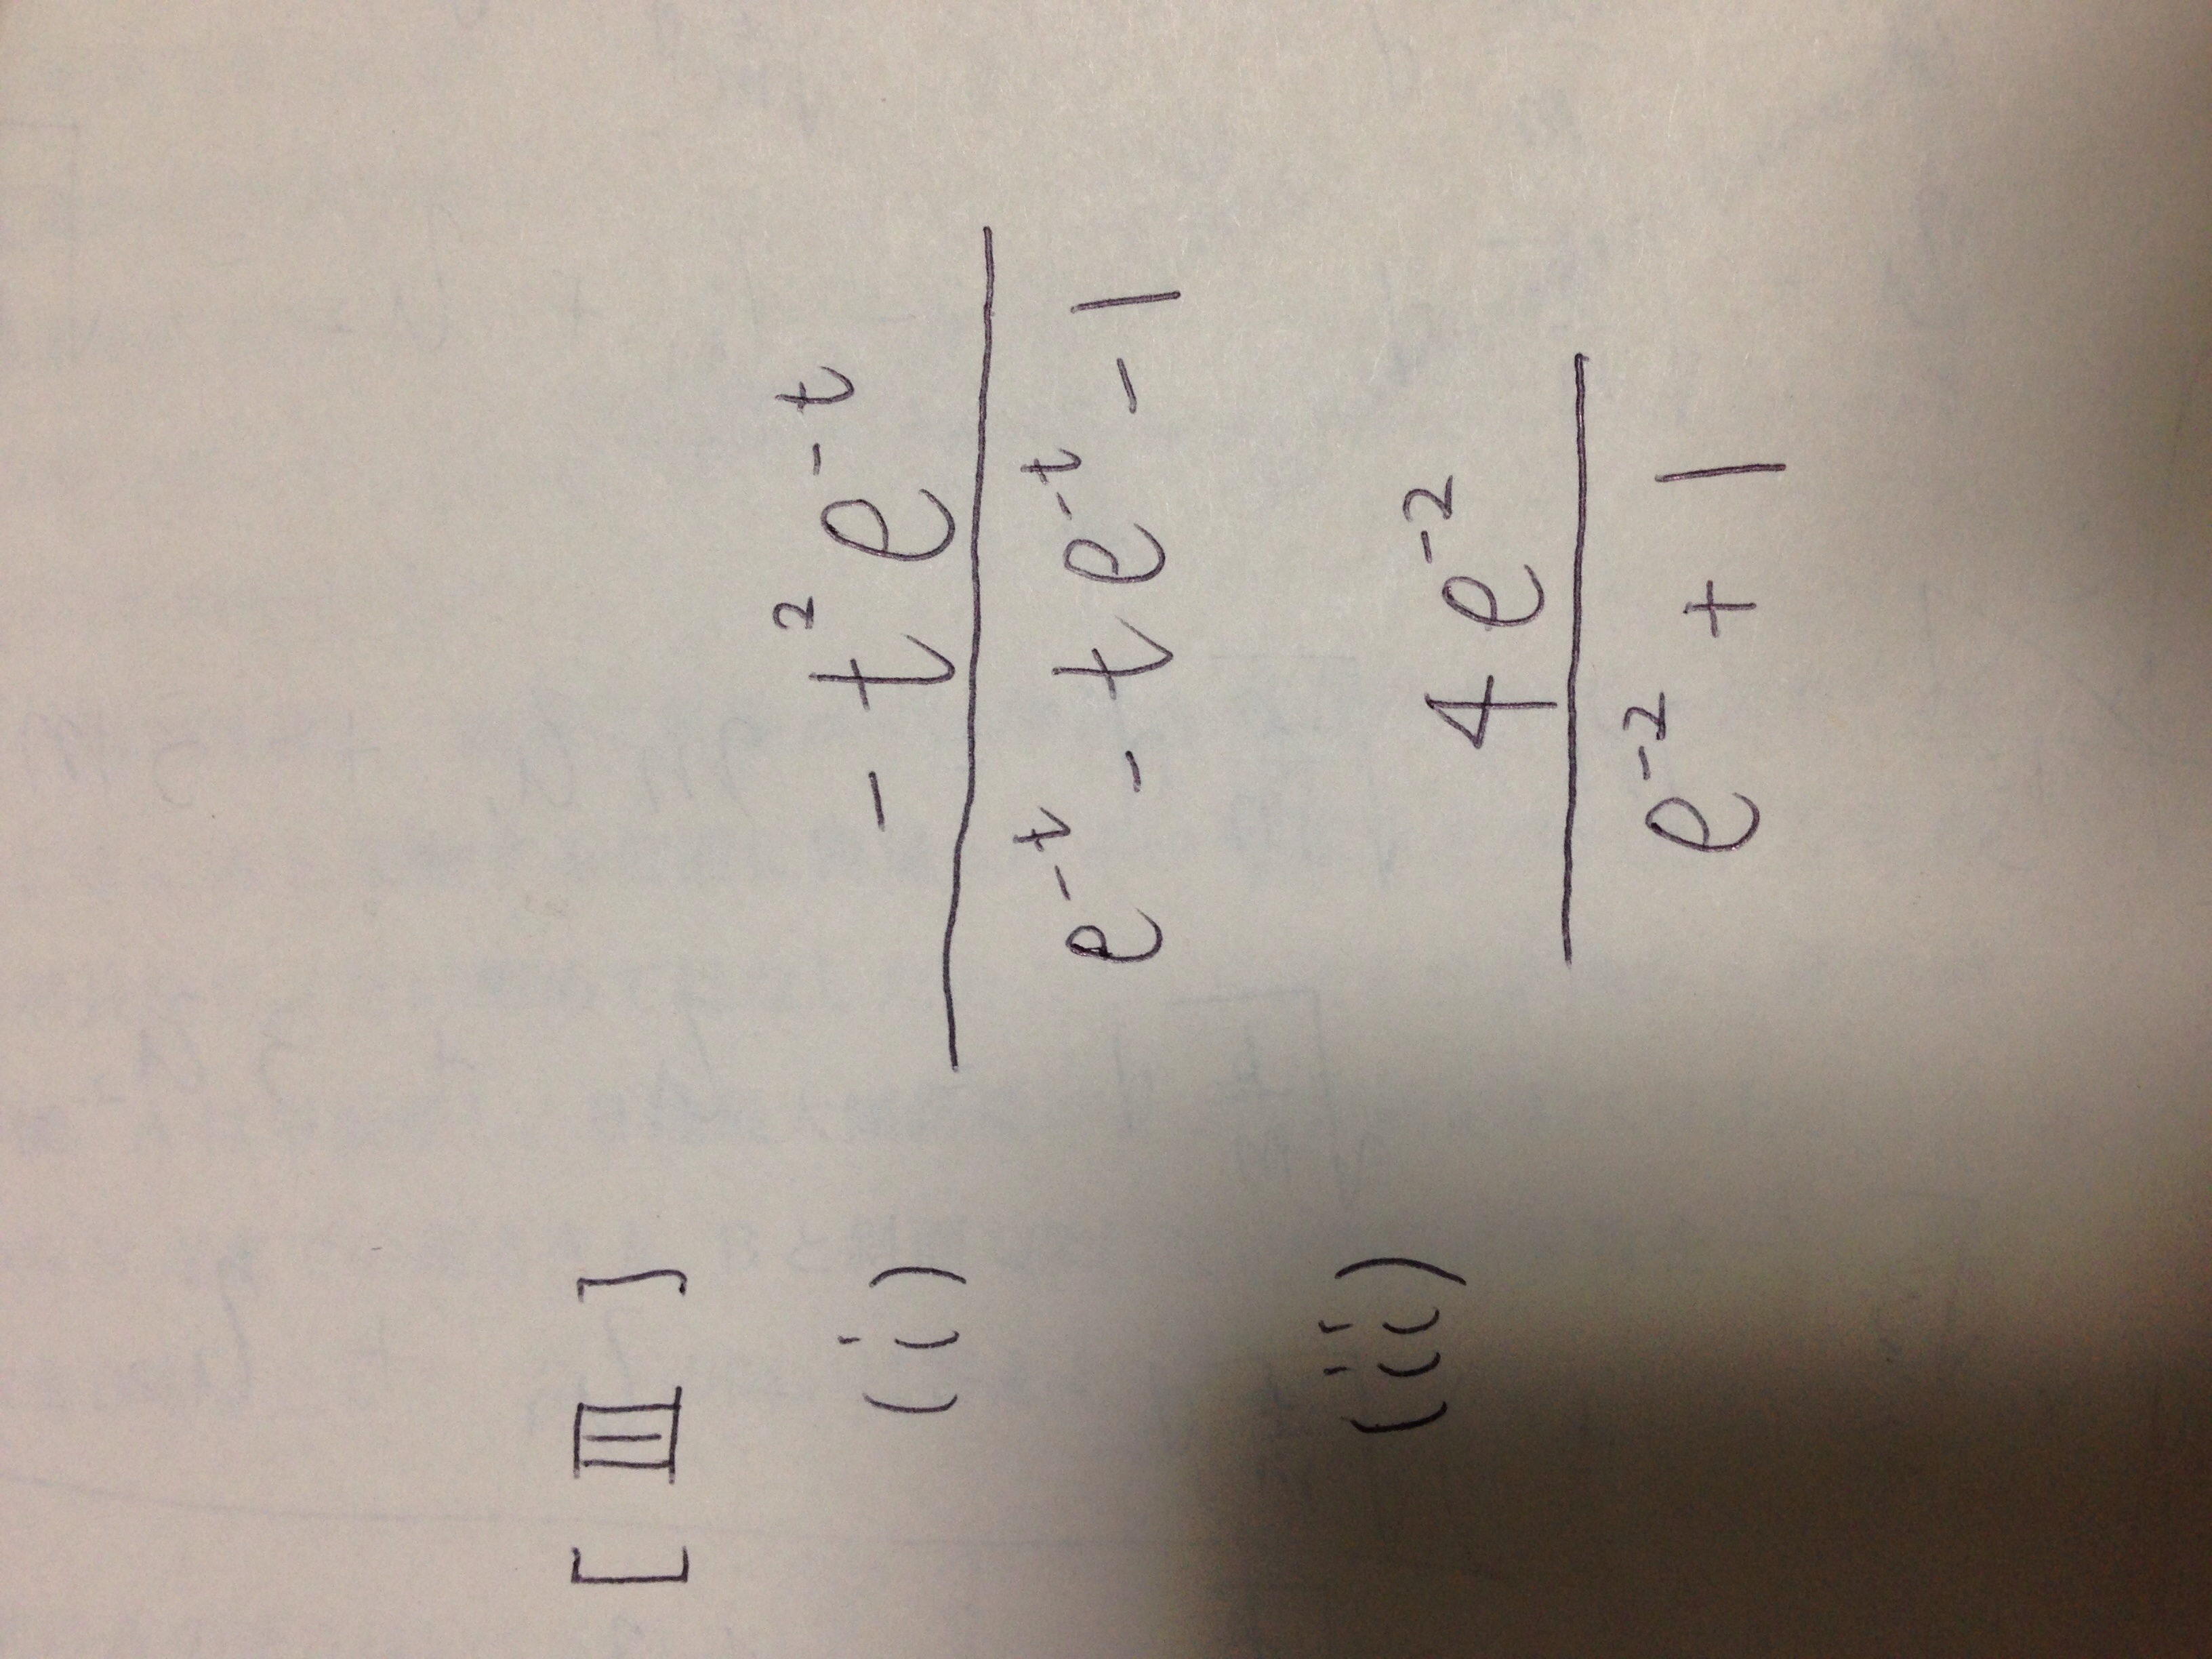 [Ⅲ]
(i)
-t²e⁻ᵗ
e⁻ᵗ - te⁻ᵗ - 1
(ii)
4e⁻²
e⁻² + 1